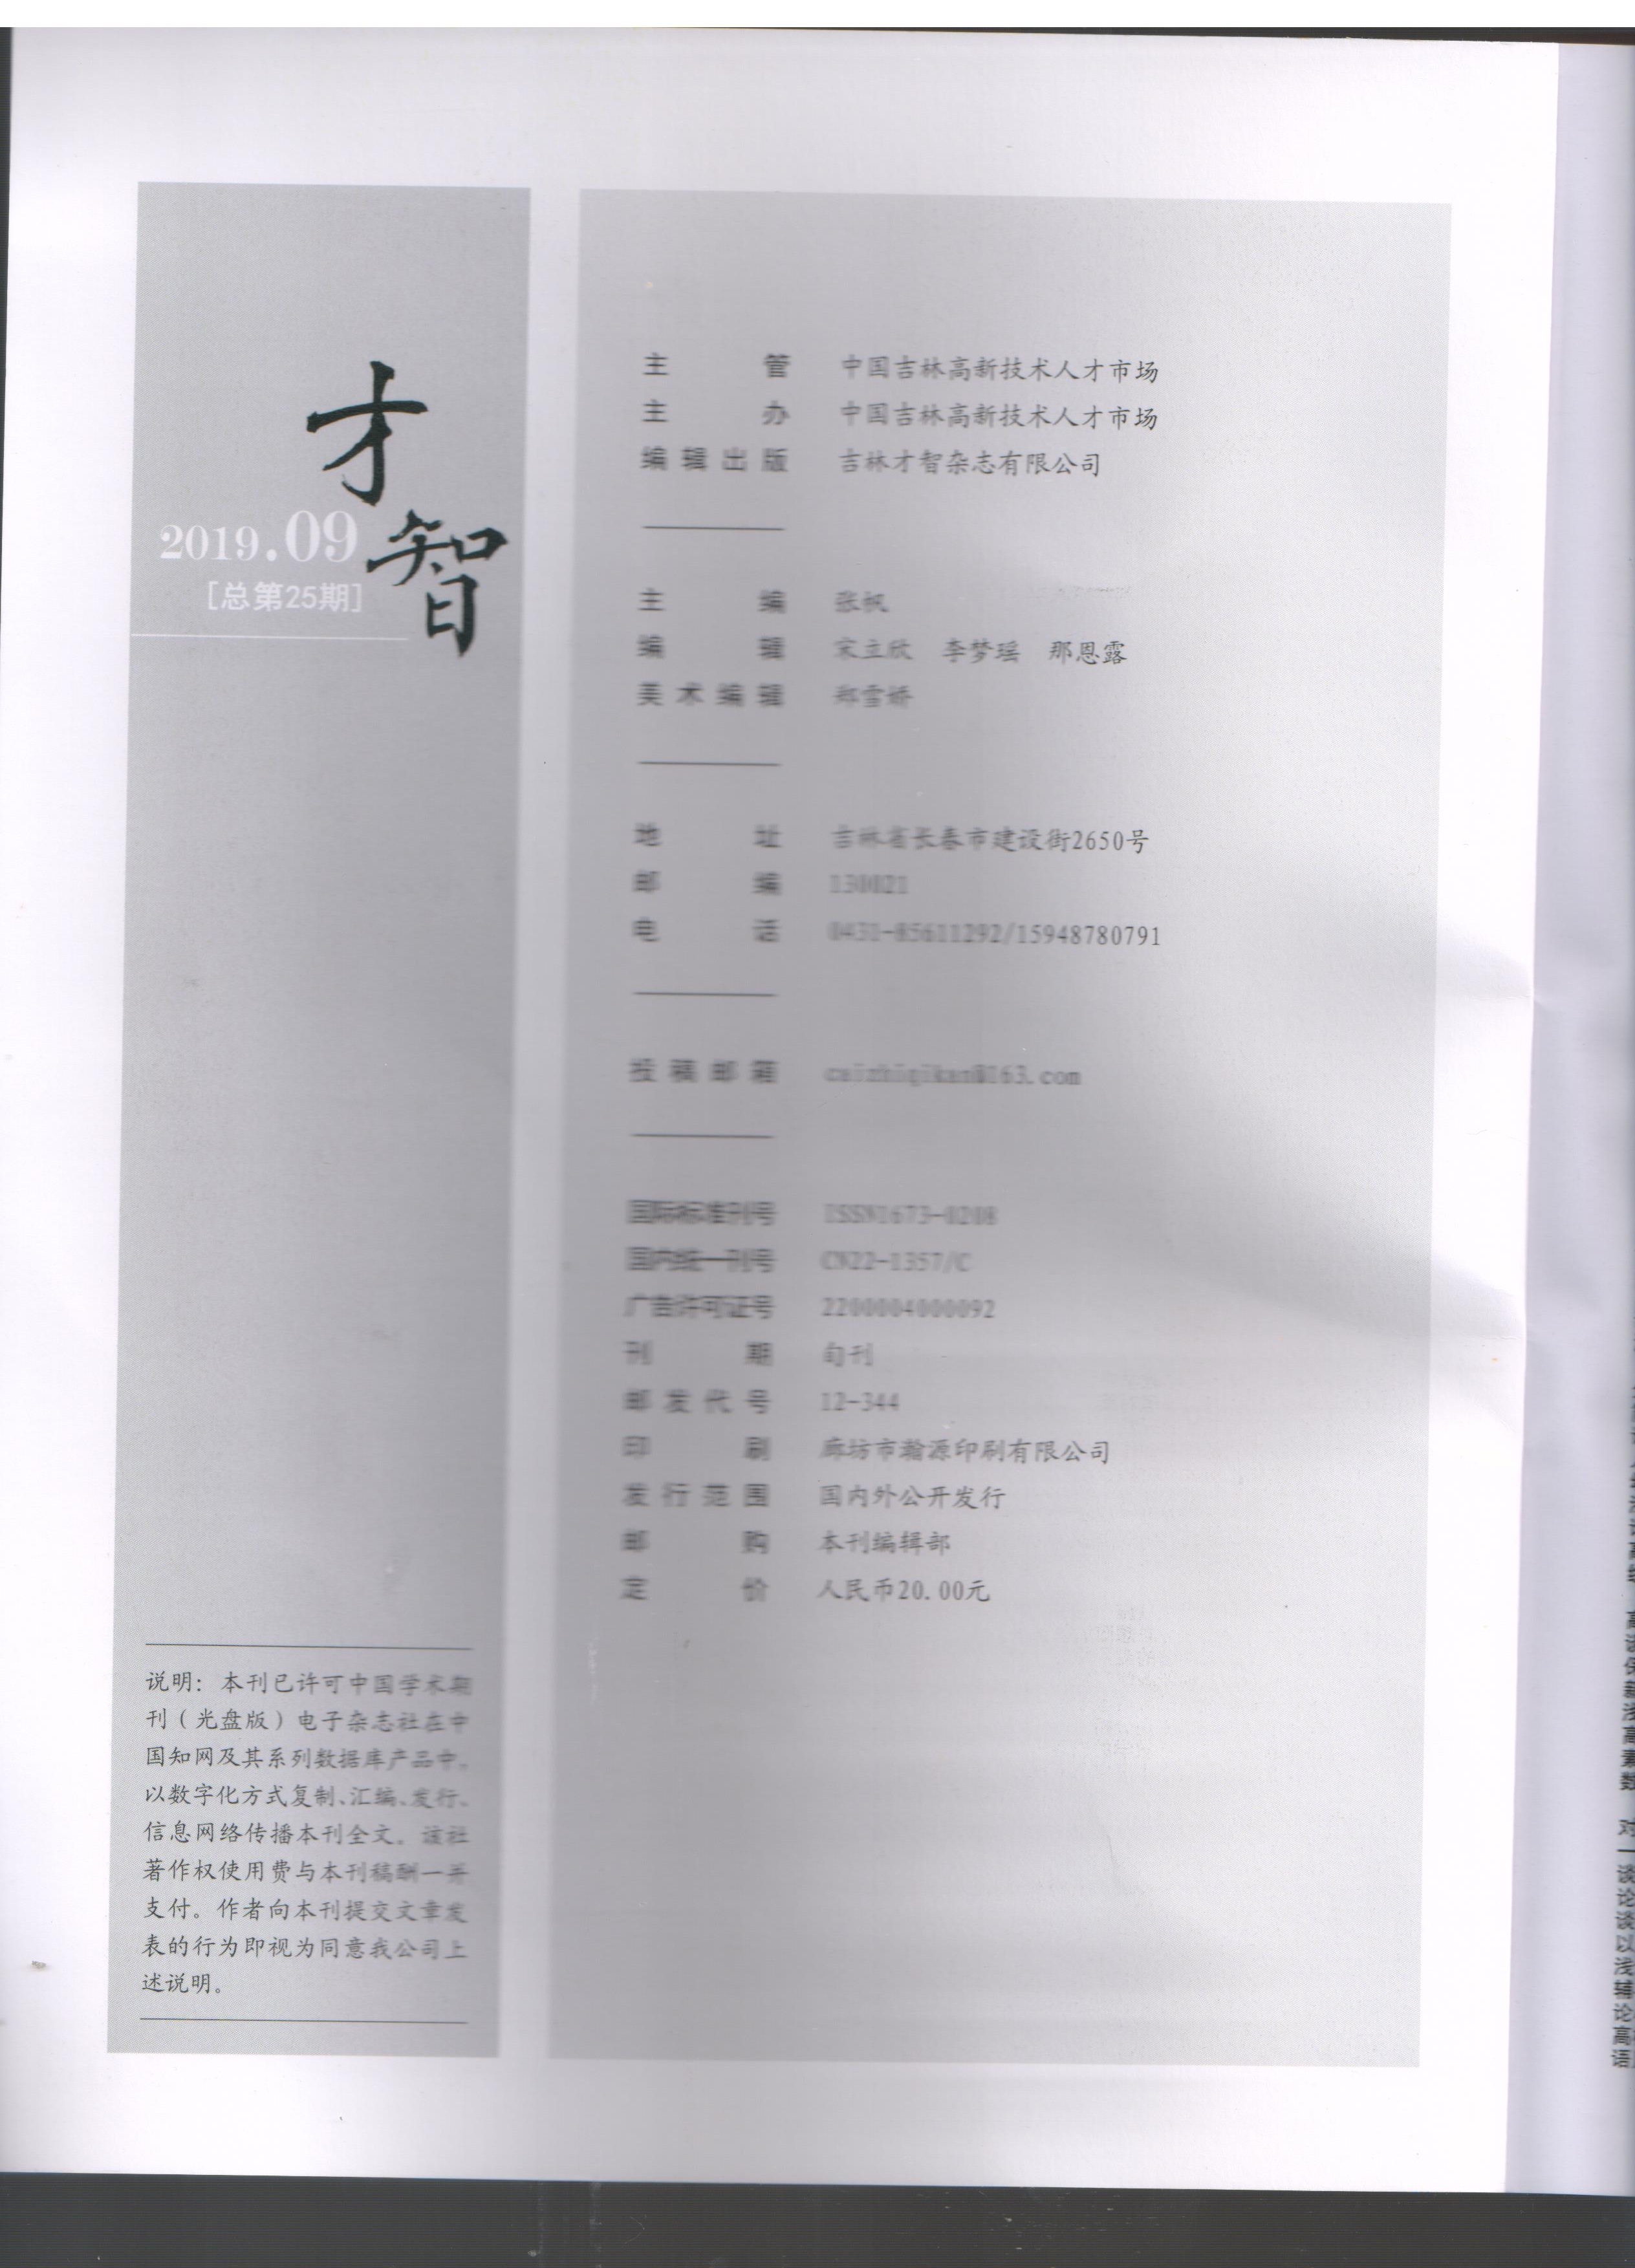 才智
2019.09
[总第25期]
说明：本刊已许可中国学术期
刊（光盘版）电子杂志社在中
国知网及其系列数据库产品中，
以数字化方式复制、汇编、发行、
信息网络传播本刊全文。该社
著作权使用费与本刊稿酬一并
支付。作者向本刊提交文章发
表的行为即视为同意我公司上
述说明。
主管 中国吉林高新技术人才市场
主办 中国吉林高新技术人才市场
编辑出版 吉林才智杂志有限公司
主编 张帆
编辑 宋立欣 李梦瑶 那恩露
美术编辑 郑雪娇
地址 吉林省长春市建设街2650号
邮编 130021
电话 0431-85611292/15948780791
投稿邮箱 caizhiqikan@163.com
国际标准刊号 ISSN1673-0208
国内统一刊号 CN22-1357/C
广告许可证号 2200004000092
刊期 旬刊
邮发代号 12-344
印刷 廊坊市瀚源印刷有限公司
发行范围 国内外公开发行
邮购 本刊编辑部
定价 人民币20.00元